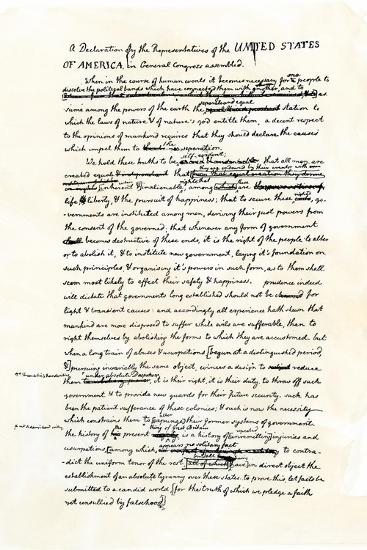 A Declaration by the Representatives of the UNITED STATES
OF AMERICA, in General Congress assembled.
When in the course of human events it becomes necessary for one people to
dissolve the political bands which have connected them with another, and to as
-sume among the powers of the earth the separate and equal station to
which the laws of nature & of nature's god entitle them, a decent respect
to the opinions of mankind requires that they should declare the causes
which impel them to the separation.
self-evident,
We hold these truths to be that all men are
created equal that they are endowed by their creator with
rights; that
inherent & inalienable, among which are
life, liberty, & the pursuit of happiness; that to secure these rights, go-
-vernments are instituted among men, deriving their just powers from
the consent of the governed; that whenever any form of government
shall becomes destructive of these ends, it is the right of the people to alter
or to abolish it, & to institute new government, laying it's foundation on
such principles & organising it's powers in such form, as to them shall
seem most likely to effect their safety & happiness. prudence indeed
will dictate that governments long established should not be changed for
light & transient causes: and accordingly all experience hath shewn that
mankind are more disposed to suffer while evils are sufferable, than to
right themselves by abolishing the forms to which they are accustomed. but
when a long train of abuses & usurpations [begun at a distinguished period,
&] pursuing invariably the same object, evinces a design to reduce
under absolute Despotism
them it is their right, it is their duty, to throw off such
government & to provide new guards for their future security. such has
been the patient sufferance of these colonies; & such is now the necessity
which constrains them to [expunge] their former systems of government.
alter
king of Great Britain
the history of the present is a history of [unremitting] injuries and
usurpations, [among which, appears no solitary fact
to contra-
-dict the uniform tenor of the rest [all of which] have in direct object the
establishment of an absolute tyranny over these states. to prove this, let facts be
submitted to a candid world, [for the truth of which we pledge a faith
yet unsullied by falsehood]